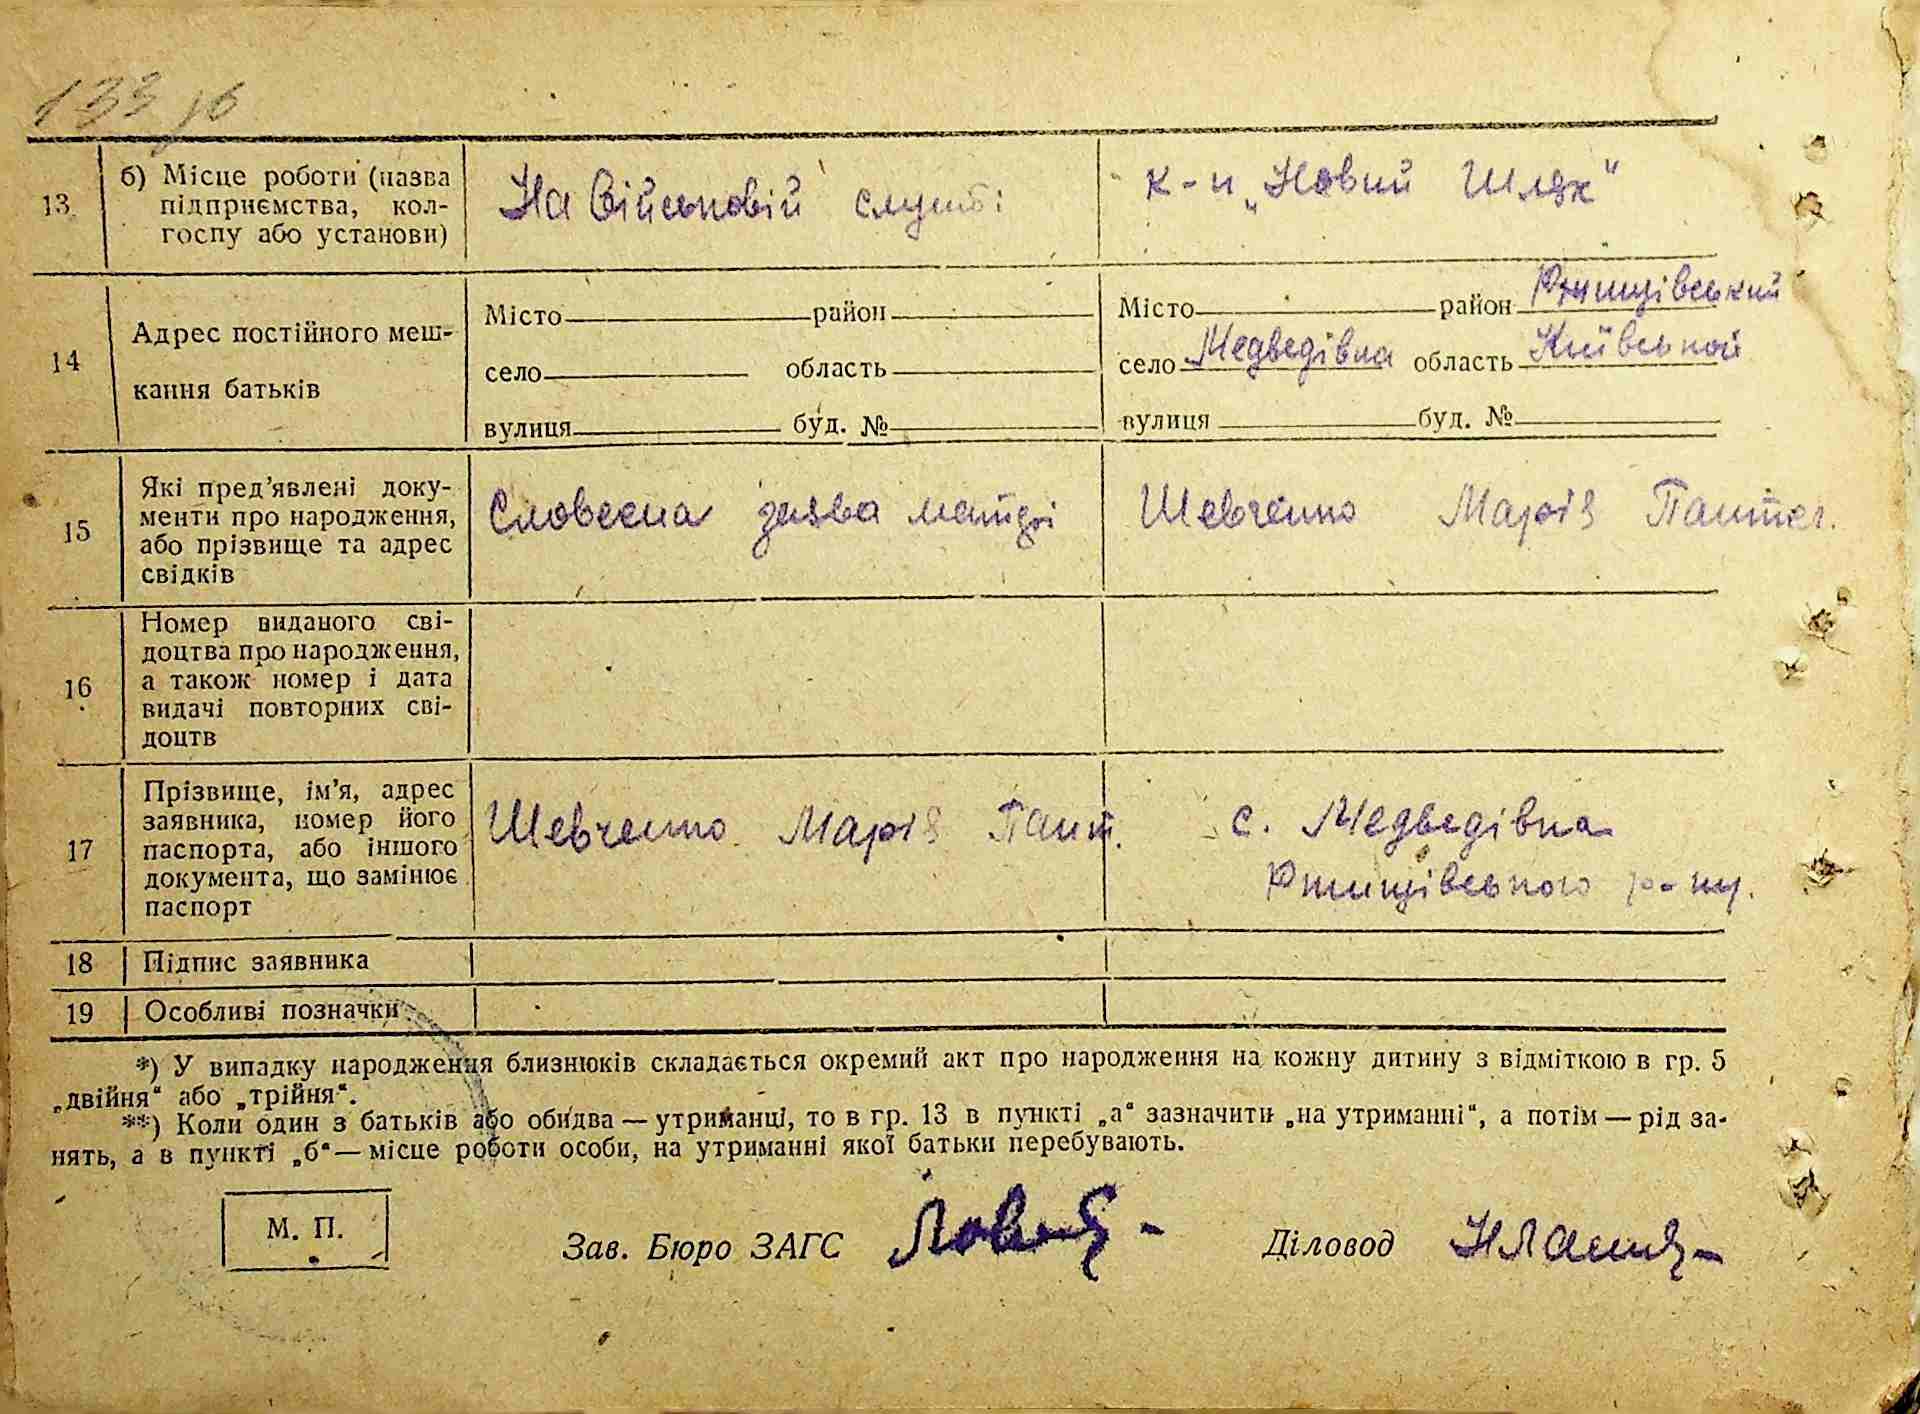 133 зб
13 б) Місце роботи (назва підприємства, кол-
госпу або установи)
На Військовій службі
к-п „Новий Шлях“
14 Адрес постійного меш-
кання батьків
Місто район
село область
вулиця буд. №
Місто район Ржищівський
село Медведівка область Київської
вулиця буд. №
15 Які пред’явлені доку-
менти про народження,
або прізвище та адрес
свідків
Словесна заява матері
Шевченко Марія Пантел.
16 Номер виданого сві-
доцтва про народження,
а також номер і дата
видачі повторних сві-
доцтв
17 Прізвище, ім’я, адрес
заявника, номер його
паспорта, або іншого
документа, що замінює
паспорт
Шевченко Марія Пант.
с. Медведівка
Ржищівського р-ну.
18 Підпис заявника
19 Особливі позначки
*) У випадку народження близнюків складається окремий акт про народження на кожну дитину з відміткою в гр. 5
„двійня“ або „трійня“.
**) Коли один з батьків або обидва — утриманці, то в гр. 13 в пункті „а“ зазначити „на утриманні“, а потім — рід за-
нять, а в пункті „б“ — місце роботи особи, на утриманні якої батьки перебувають.
М. П.
Зав. Бюро ЗАГС
Діловод